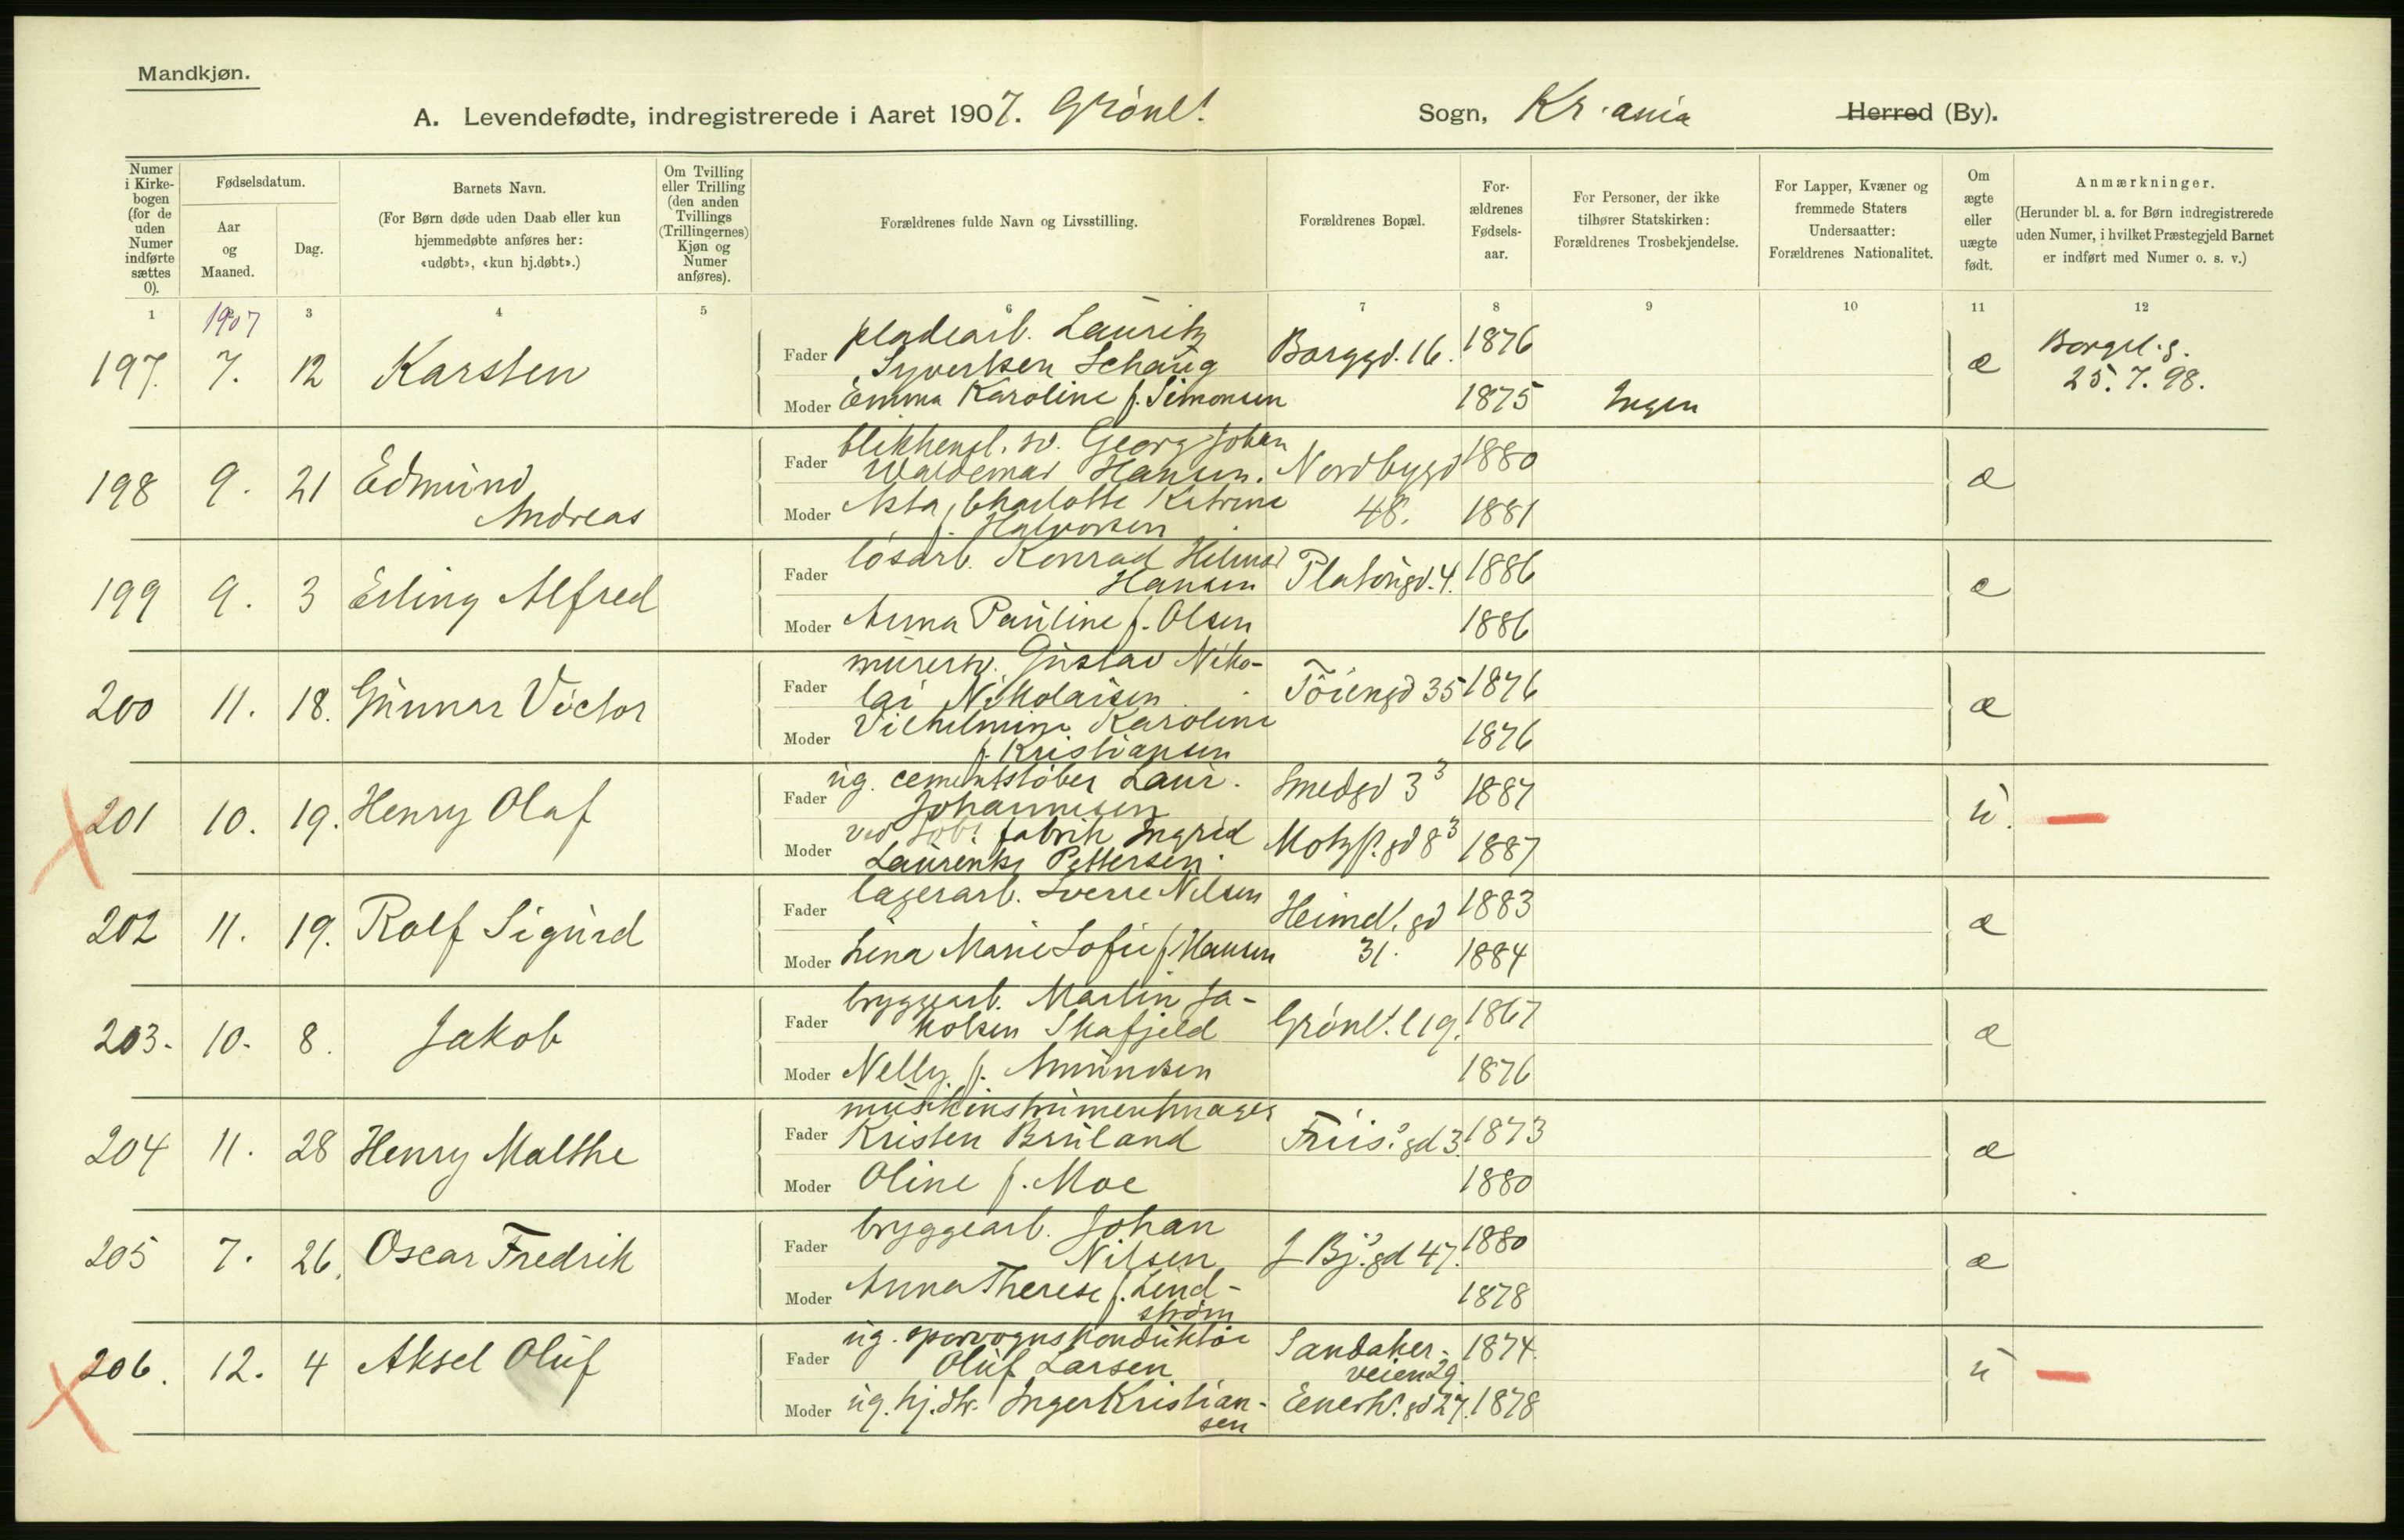 Mandkjøn.
A. Levendefødte, indregistrerede i Aaret 1907. Grönl! Sogn, Kr.ania Herred (By).
Numer i Kirke-bogen (for de uden Numer indførte sættes 0).
Fødselsdatum.
Aar og Maaned.
Dag.
Barnets Navn.
(For Børn døde uden Daab eller kun hjemmedøbte anføres her: «udøbt», «kun hj.døbt».)
Om Tvilling eller Trilling (den anden Tvillings (Trillingernes) Kjøn og Numer anføres).
Forældrenes fulde Navn og Livsstilling.
Forældrenes Bopæl.
For-ældrenes Fødsels-aar.
For Personer, der ikke tilhører Statskirken: Forældrenes Trosbekjendelse.
For Lapper, Kvæner og fremmede Staters Undersaatter: Forældrenes Nationalitet.
Om ægte eller uægte født.
Anmærkninger.
(Herunder bl. a. for Børn indregistrerede uden Numer, i hvilket Præstegjeld Barnet er indført med Numer o. s. v.)
1 3 4 5 6 7 8 9 10 11 12
1907
197. 7. 12 Karsten
Fader pladearb. Lauritz
Syvertsen Schaug Borggd. 16. 1876
Moder Emma Karoline f. Simonsen 1875 Ingen
æ Borgel. g.
25. 7. 98.
198 9. 21 Edmund
Andreas
Fader blikkensl. sv. Georg Johan
Waldemar Hansen. Nordbygd 1880
Moder Asta Charlotte Katrine 48. 1881
f. Halvorsen
æ
199 9. 3 Erling Alfred
Fader løsarb. Konrad Hilmar
Hansen Platougd. 4. 1886
Moder Anna Pauline f. Olsen 1886
æ
200 11. 18. Gunnar Victor
Fader murersv. Gustav Niko-
lai Nikolaisen Töiengd 35 1876
Moder Vilhelmine Karoline 1876
f. Kristiansen
æ
201 10. 19. Henry Olaf
Fader ug. cementstöber Laur.
Johannesen Smedgd 3³ 1887
Moder ved fabrik Ingrid
Laurentze Pettersen. Motzf. gd 8³ 1887
u.
202 11. 19. Rolf Sigurd
Fader lagerarb. Sverre Nilsen Heimd!. gd 1883
Moder Lina Marie Sofie f. Hansen 31. 1884
æ
203. 10. 8. Jakob
Fader bryggearb. Martin Ja-
kobsen Skafjeld Grönl!. l 19. 1867
Moder Nelly f. Amundsen 1876
æ
204 11. 28 Henry Malthe
Fader musikinstrumentmager
Kristen Bruland Friis! gd 3. 1873
Moder Oline f. Moe 1880
æ
205 7. 26. Oscar Fredrik
Fader bryggearb. Johan
Nilsen J Bj! gd 47. 1880
Moder Anna Therese f. Lind-
ström 1878
æ
206. 12. 4 Aksel Oluf
Fader ug. sporvognskonduktör
Oluf Larsen Sandaker-
veien 29. 1874.
Moder ug. hj. dtr. Inger Kristian-
sen Enerh!. gd 27. 1878
u